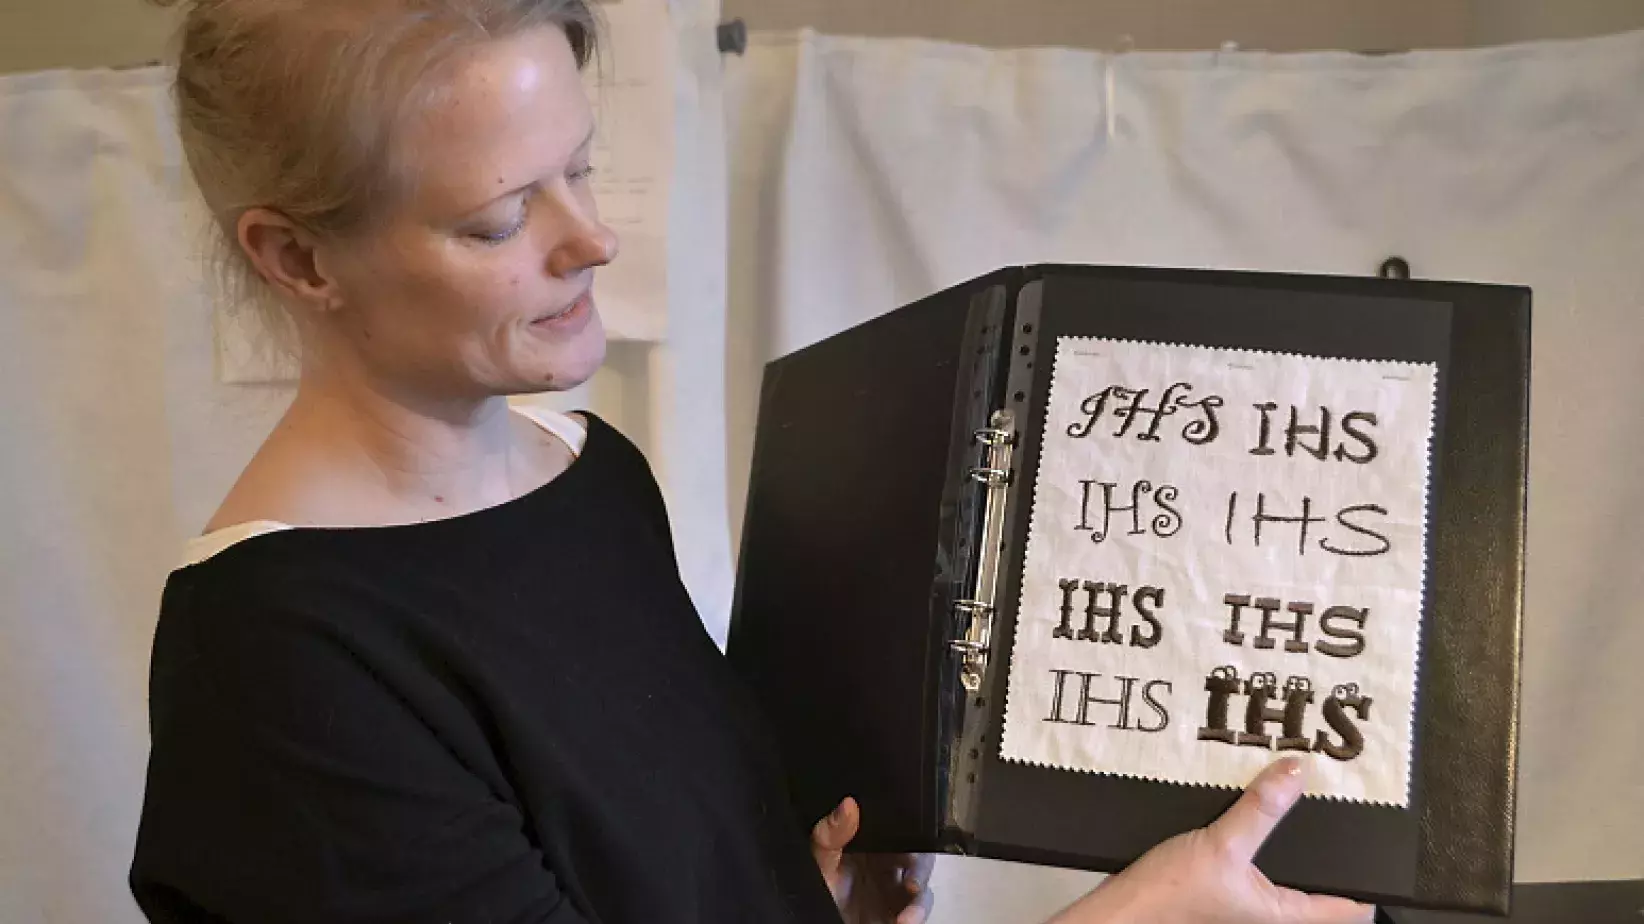 IHS IHS
IHS IHS
IHS IHS
IHS IHS